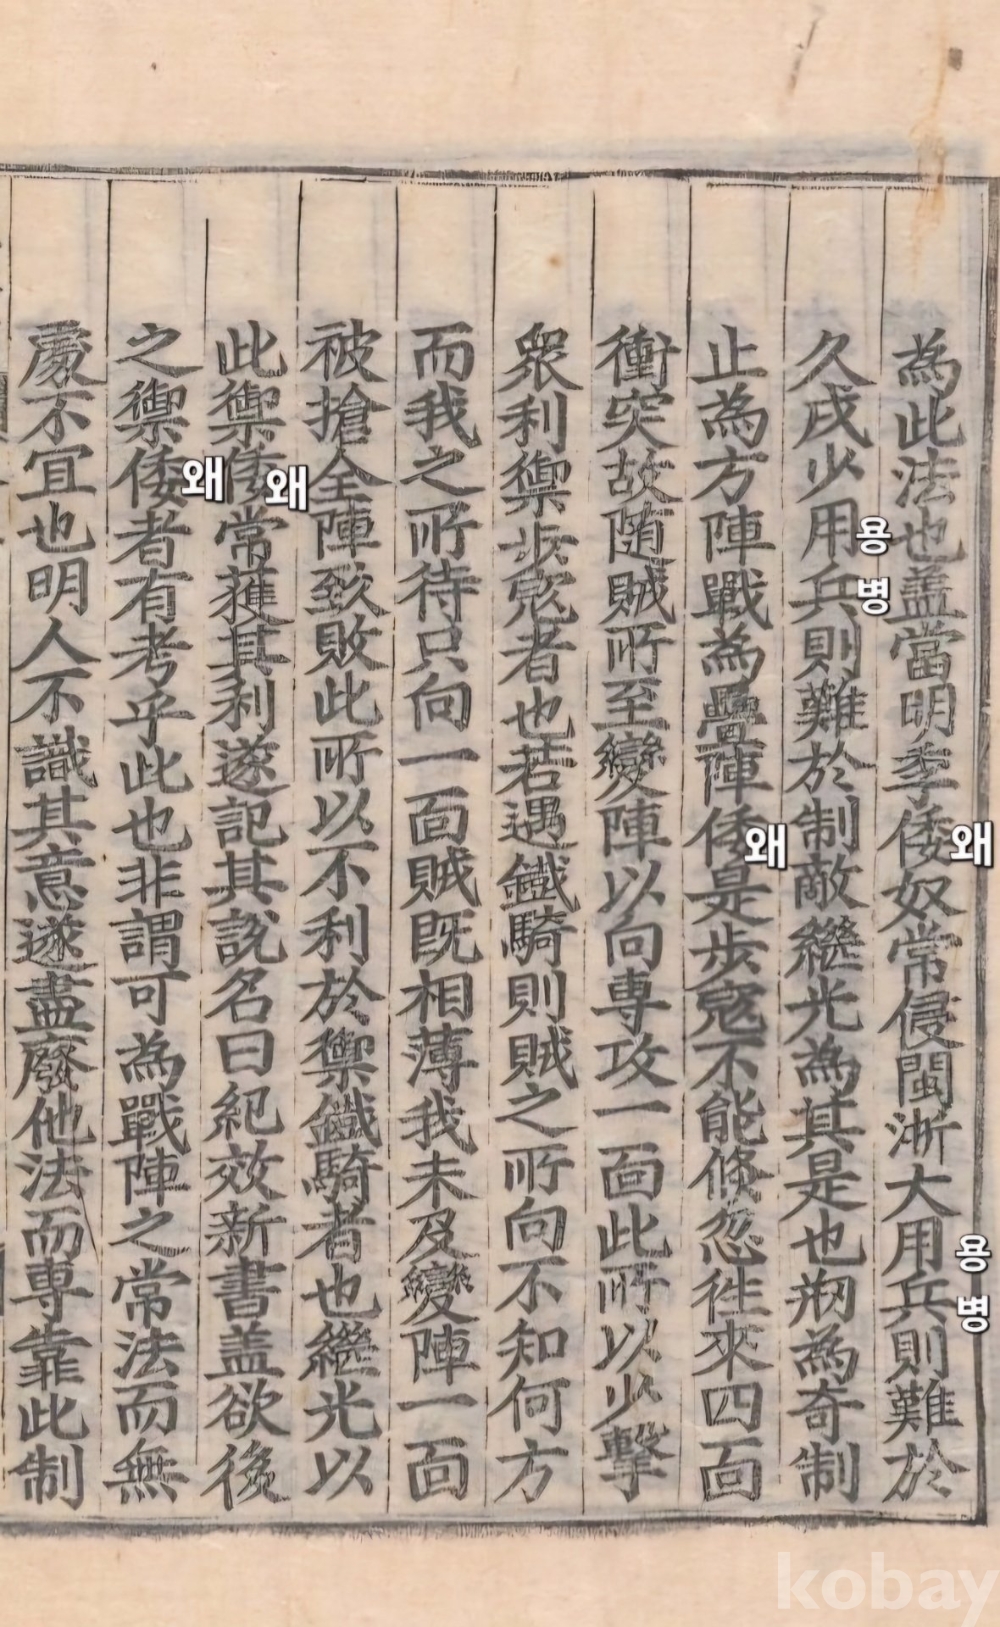 為此法也盖當明季倭奴常侵閩淅大用兵則難於
久戍少用兵則難於制敵繼光為其是也刱為奇制
止為方陣戰為疊陣倭是步寇不能倏忽徃來四面
衝突故随賊所至變陣以向專攻一面此所以少擊
衆利禦步寇者也若遇鐵騎則賊之所向不知何方
而我之所待只向一面賊既相薄我未及變陣一面
被搶全陣致敗此所以不利於禦鐵騎者也繼光以
此禦倭常獲其利遂記其說名曰紀效新書盖欲後
之禦倭者有考乎此也非謂可為戰陣之常法而無
處不宜也明人不識其意遂盡廢他法而專靠此制
왜
용
병
왜
용
병
왜
왜
kobay